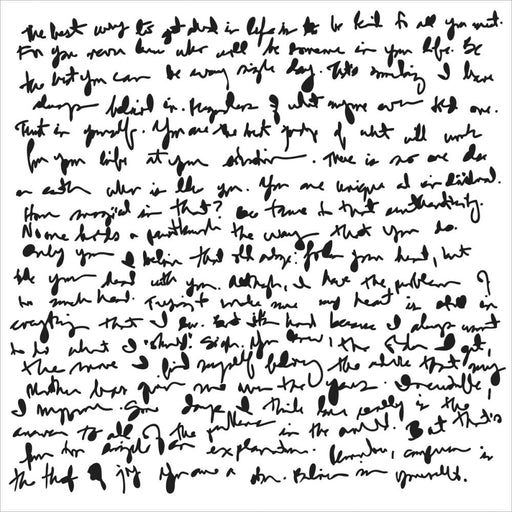 The best way to get ahead in life is to be kind to all you meet.
For you never know who will be someone in your life. Be
the best you can be every single day. That's something I have
always believed in. Regardless of what anyone ever told me.
Trust in yourself. You are the best judge of what will work
for your life at your. There is no one else
on earth who is like you. You are unique individual.
How magical is that? be true to that authenticity.
No one holds a paintbrush the way that you do.
Only you I believe that old adage: follow your heart, but
take your head with you. Although, I have the problem of
too much heart. Trying to make sure my heart is still in
everything that I do. But it's hard because I always want
to do what I should. Sigh. You know, the older I get,
the more I find myself believing the advice that my
Mother has given me over the years. Incredible,
I suppose. Some days I think love really is the
answer to all of the problems in the world. But that's
far too simple an explanation. comparison is
the thief of joy You are a. Believe in yourself.